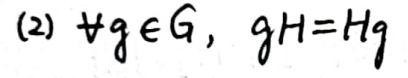 (2) ∀g∈G, gH=Hg